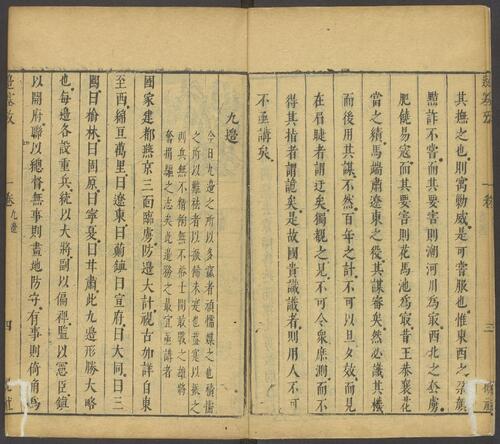 其撫之也則寓勦威是可嘗服也惟東西之
黠詐不嘗而其要害則潮河川爲冣西北之套虜
肥饒易寇而其要害則花馬池爲冣昔王恭襄花
當之績馬端肅遼東之役其謀審矣然必識其機
而後用其謀不然百年之計不可以旦夕效而見
在眉睫者謂迂矣獨覩之見不可令衆庶測而不
得其指者謂詭矣是故國貴識識者則用人不可
不亟講矣
九邊
今日九邊之所以多贏者
之所以難祛者以
則兵無不精餉無不
奮損軀之志矣此邊務之最宜亟講者
國家建都燕京三面臨虜防邊大計視古加詳自東
至西綿亙萬里曰遼東曰薊鎮曰宣府曰大同曰三
關曰榆林曰固原曰寧夏曰甘肅此九邊形勝大略
也每邊各設重兵統以大將副以偏裨監以憲臣鎮
以開府聯以總督無事則畫地防守有事則掎角爲
一卷 九邊
四